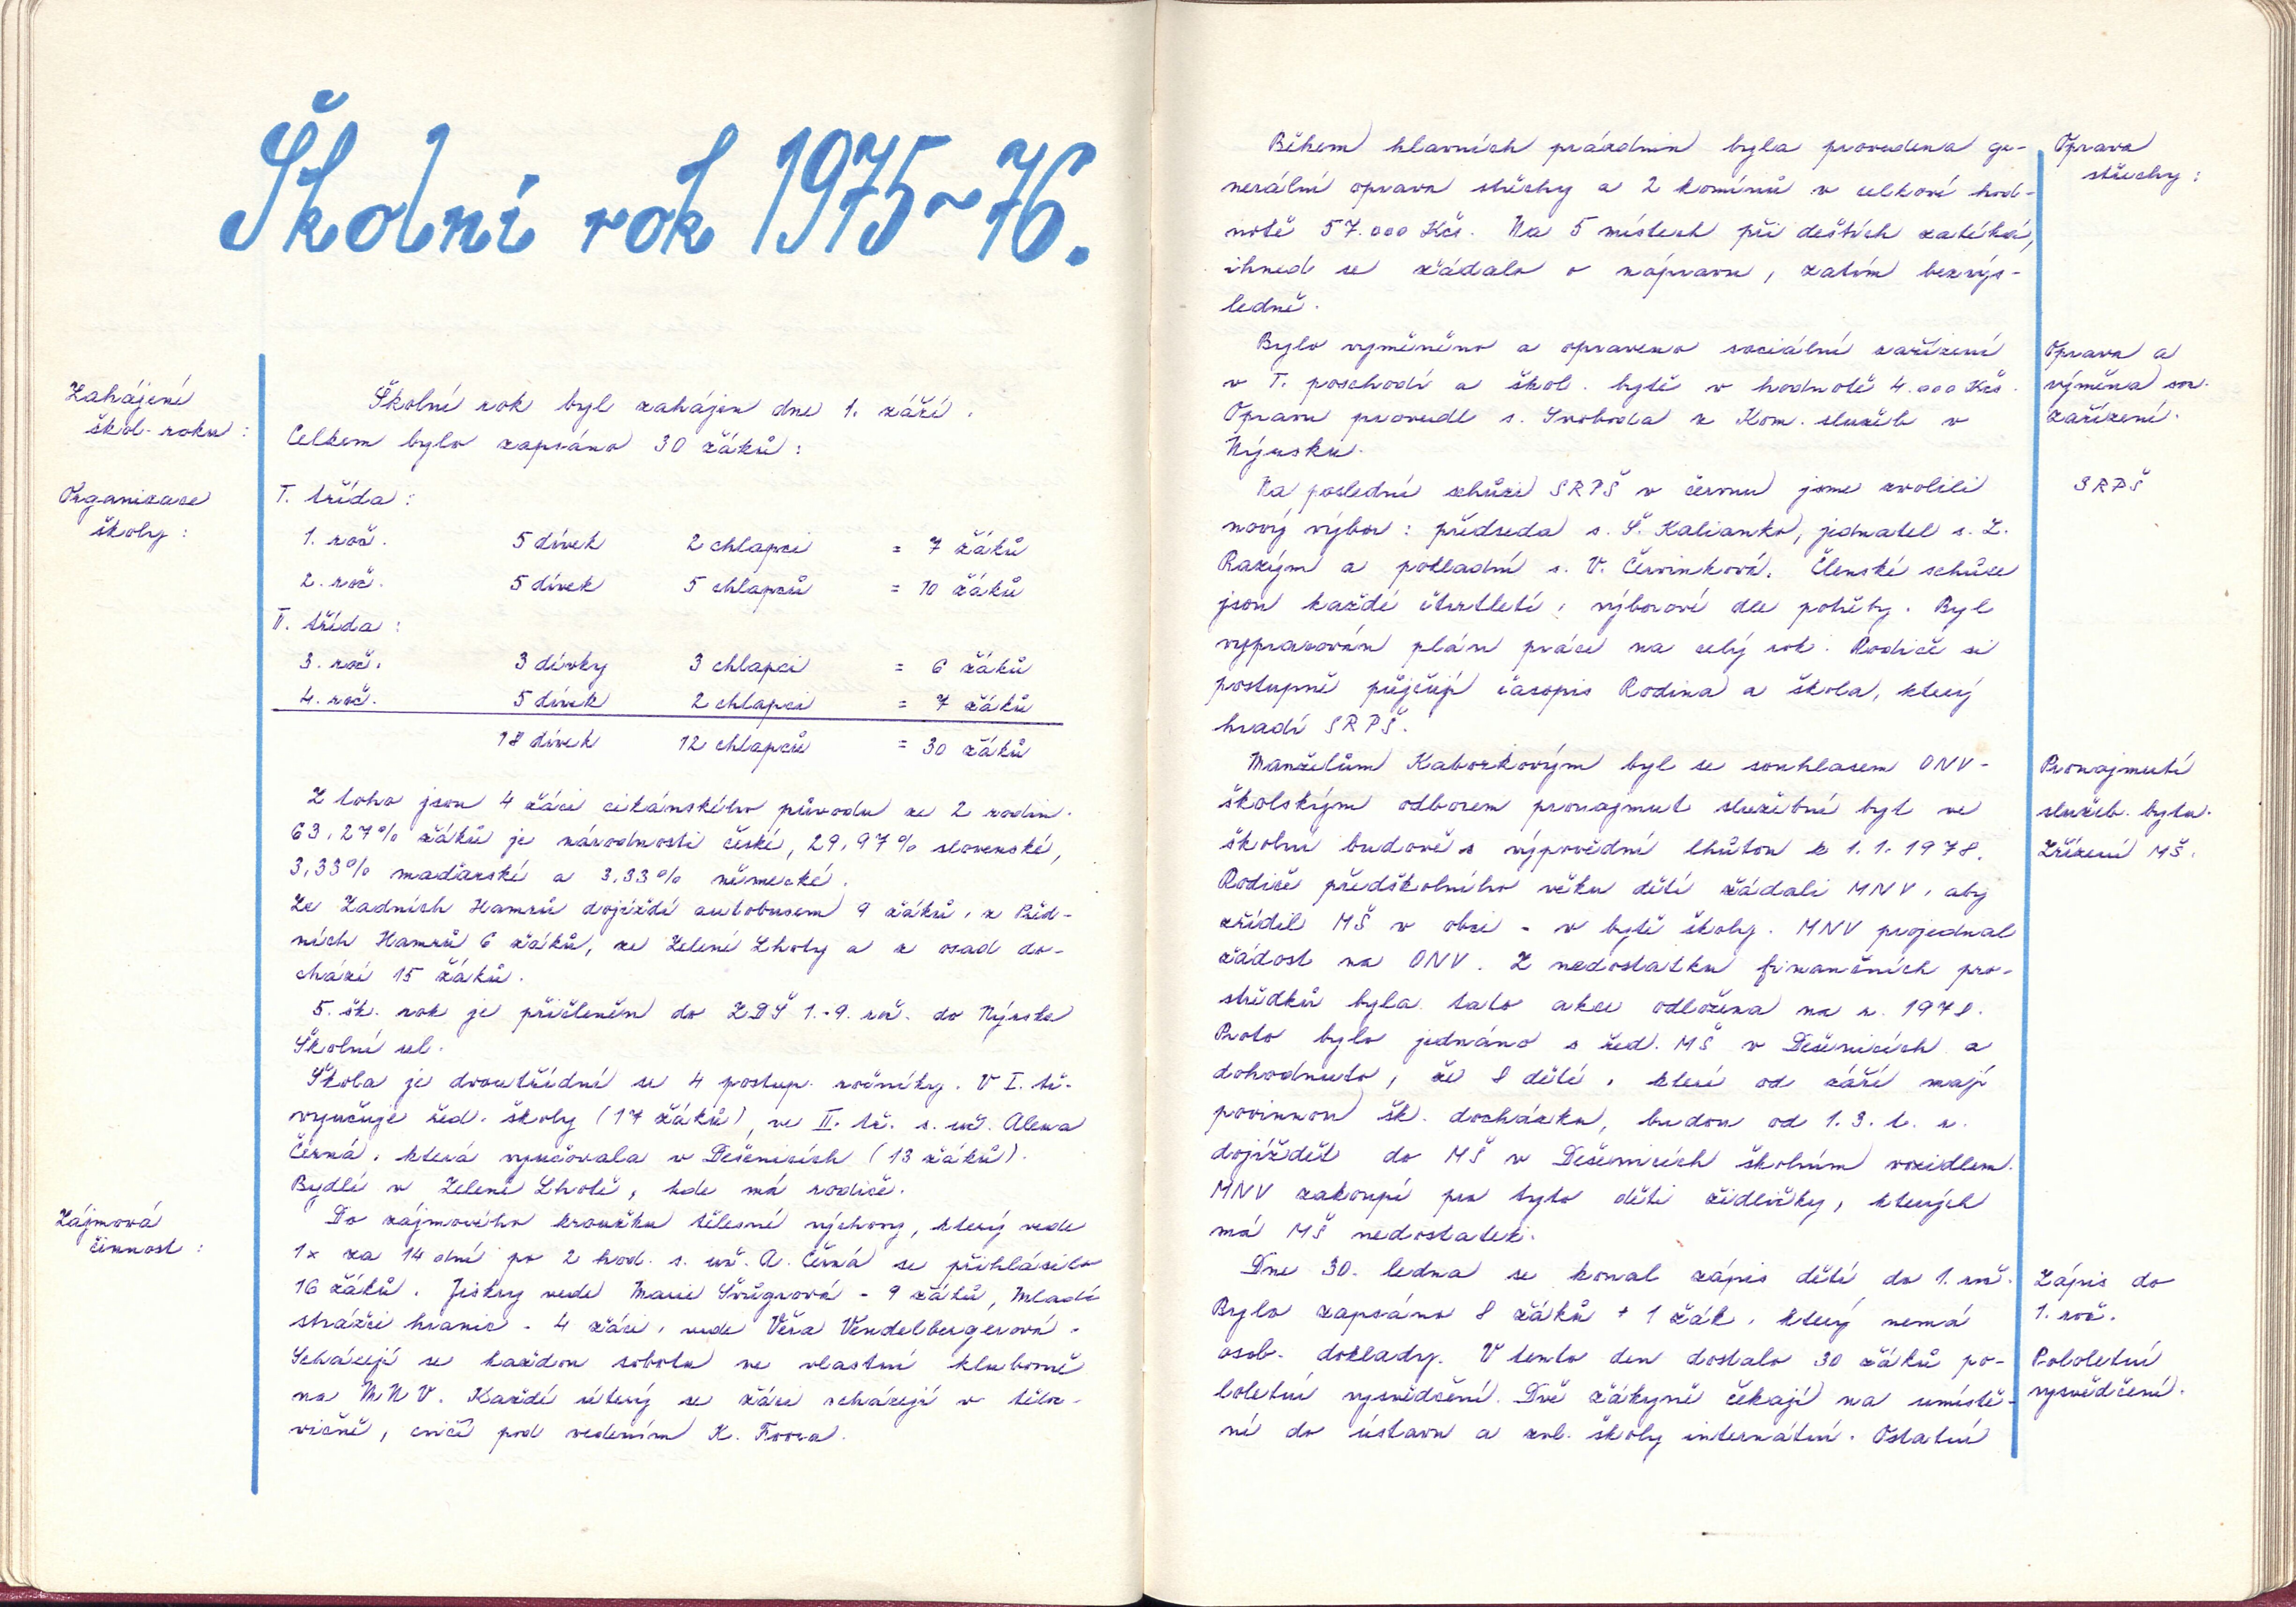 Školní rok 1975~76.
Zahájení
škol. roku :
Školní rok byl zahájen dne 1. září.
Celkem bylo zapsáno 30 žáků :
Organizace
školy :
I. třída :
1. roč. 5 dívek 2 chlapci = 7 žáků
2. roč. 5 dívek 5 chlapců = 10 žáků
II. třída :
3. roč. 3 dívky 3 chlapci = 6 žáků
4. roč. 5 dívek 2 chlapci = 7 žáků
18 dívek 12 chlapců = 30 žáků
Z toho jsou 4 žáci cikánského původu ze 2 rodin.
63,27% žáků je národnosti české, 29,97% slovenské,
3,33% maďarské a 3,33% německé.
Ze Zadních Hamrů dojíždí autobusem 9 žáků, z Před-
ních Hamrů 6 žáků, ze Zelené Lhoty a z osad do-
chází 15 žáků.
5. šk. rok je přičleněn do ZDŠ 1.-9. roč. do Nýrska
Školní ul.
Škola je dvoutřídní se 4 postup. ročníky. V I. tř.
vyučuje řed. školy (17 žáků), ve II. tř. s. uč. Alena
Černá, která vyučovala v Dešenicích (13 žáků).
Bydlí v Zelené Lhotě, kde má rodiče.
Zájmová
činnost :
Do zájmového kroužku tělesné výchovy, který vede
1x za 14 dní po 2 hod. s. uč. A. Černá se přihlásilo
16 žáků. Jiskry vede Marie - 9 žáků, Mladé
strážce hranic - 4 žáci, vede Věra Vendelbergerová.
Scházejí se každou sobotu ve vlastní klubovně
na MNV. Každé úterý se žáci scházejí v tělo-
vičně, cvičí pod vedením K.
Během hlavních prázdnin byla provedena ge-
nerální oprava střechy a 2 komínů v celkové hod-
notě 57.000 Kčs. Na 5 místech při deštích zatéká,
ihned se žádalo o nápravu, zatím bezvýs-
ledně.
Oprava
střechy :
Bylo vyměněno a opraveno sociální zařízení
v I. poschodí a škol. bytě v hodnotě 4.000 Kčs.
Opravu provedl s. Svoboda z Kom. služeb v
Nýrsku.
Oprava a
výměna soc.
zařízení.
Na poslední schůzi SRPŠ v červnu jsme zvolili
nový výbor : předseda s. Š. Kalianko, jednatel s. Z.
Razým a pokladní s. V. Červinková. Členské schůze
jsou každé čtvrtletí, výborové dle potřeby. Byl
vypracován plán práce na celý rok. Rodiče si
postupně půjčují časopis Rodina a škola, který
hradí SRPŠ.
SRPŠ
Manželům Kaborkovým byl se souhlasem ONV -
školským odborem pronajmut služební byt ve
školní budově s výpovědní lhůtou k 1.1.1978.
Rodiče předškolního věku dětí žádali MNV, aby
zřídil MŠ v obci - v bytě školy. MNV projednal
žádost na ONV. Z nedostatku finančních pro-
středků byla tato akce odložena na r. 1978.
Proto bylo jednáno s řed. MŠ v Dešenicích a
dohodnuto, že 8 dětí, které od září mají
povinnou šk. docházku, budou od 1.3. t. r.
dojíždět do MŠ v Dešenicích školním vozidlem.
MNV zakoupí pro tyto děti židličky, kterých
má MŠ nedostatek.
Pronajmutí
služeb. bytu.
Zřízení MŠ.
Dne 30. ledna se konal zápis dětí do 1. roč.
Bylo zapsáno 8 žáků + 1 žák, který nemá
osob. doklady. V tento den dostalo 30 žáků po-
loletní vysvědčení. Dvě žákyně čekají na umístě-
ní do ústavu a zvl. školy internátní. Ostatní
Zápis do
1. roč.
Pololetní
vysvědčení.